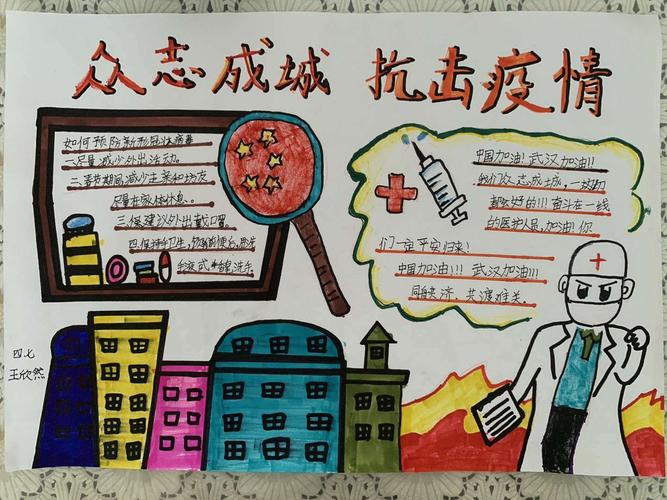 众志成城 抗击疫情
如何预防新形冠状病毒
一.尽量减少外出活动。
二.春节期间减少走亲和访友
尽量在家休息。
三.保建议外出戴口罩。
四.保持手卫生,饭前饭后,洗
手液或 洗手
中国加油!武汉加油!!
我们众志成城,一切
都会好的!!!奋斗在一线
的医护人员,加油!你
们一定平安归来!
中国加油!!! 武汉加油!!!
同舟共济,共渡难关。
四.七
王欣然